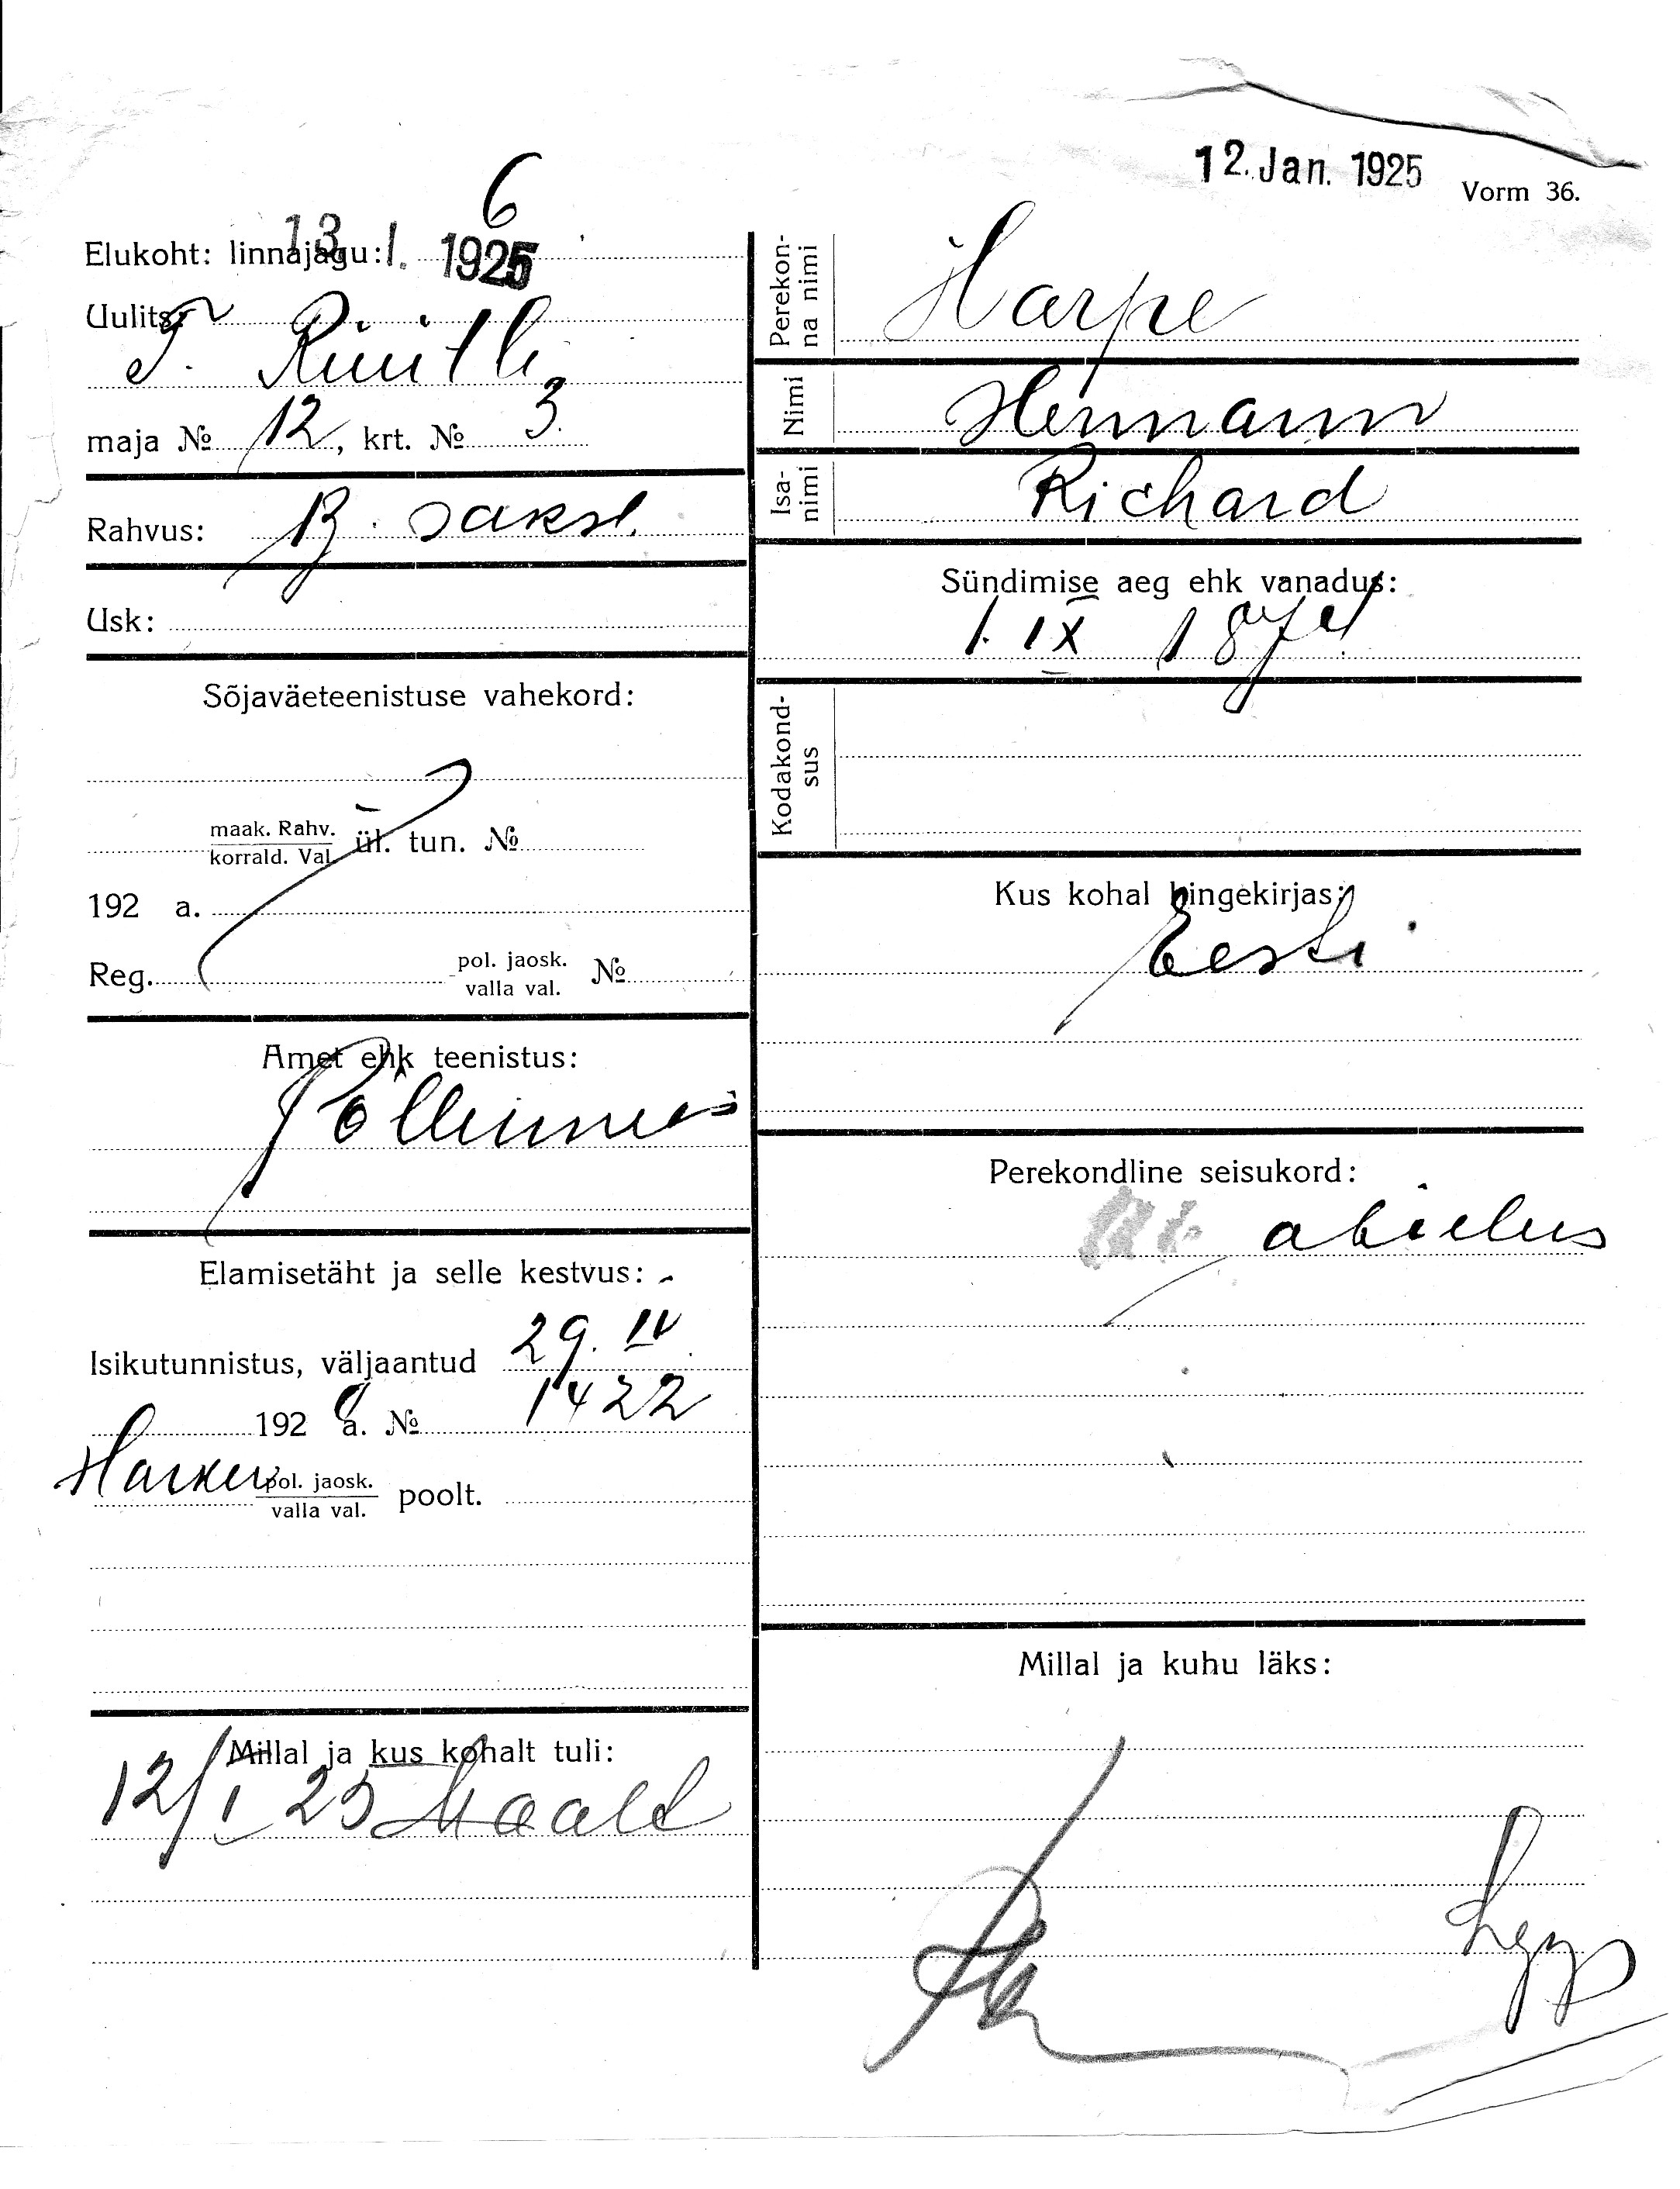 12. Jan. 1925
Vorm 36.
6
13. I. 1925
Elukoht: linnajagu:
Uulits:
T. Rüütli
maja № 12, krt. № 3.
Rahvus: B. saksl.
Usk:
Sõjaväeteenistuse vahekord:
maak. Rahv.
korrald. Val. ül. tun. №
192 a.
Reg. pol. jaosk. №
valla val.
Amet ehk teenistus:
Põllumees
Elamisetäht ja selle kestvus:
Isikutunnistus, väljaantud 29. IV
192 a. № 1422
Harku pol. jaosk.
valla val. poolt.
Millal ja kus kohalt tuli:
12/I 25 Maalt
Perekon-
na nimi
Harpe
Nimi
Hermann
Isa-
nimi
Richard
Sündimise aeg ehk vanadus:
1. IX 1874
Kodakond-
sus
Kus kohal hingekirjas:
Eesti
Perekondline seisukord:
abielus
Millal ja kuhu läks: